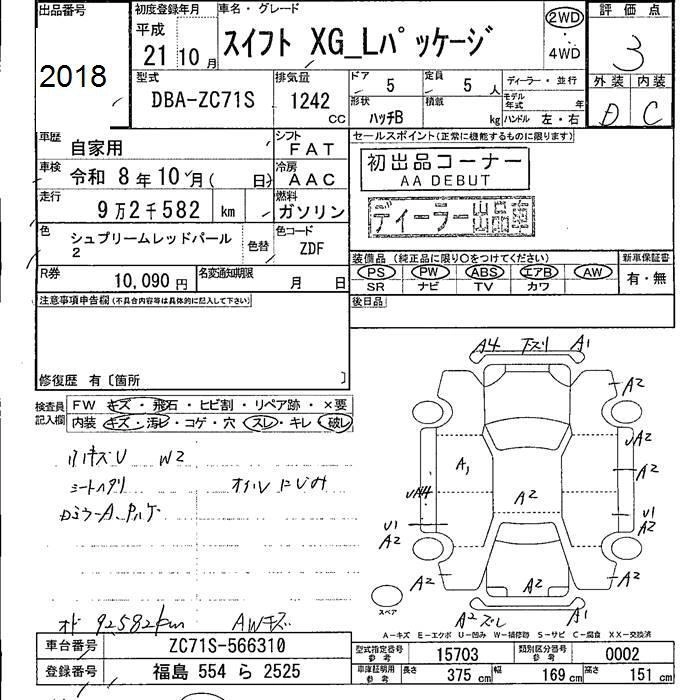 出品番号 初度登録年月 車名・グレード 評価点
平成 スイフト XG_Lパッケージ 2WD 3
2018 21 10月 4WD
型式 排気量 ドア 5 定員 5人 ディーラー・並行 外装 内装
DBA-ZC71S 1242 CC 形状 ハッチB 積載 kg モデル年式 年 D C
ハンドル 左・右
車歴 自家用 シフト FAT セールスポイント(正常に機能するものに限ります)
車検 令和 8年10月( 日) 冷房 AAC 初出品コーナー
AA DEBUT
走行 9万2千582 km 燃料 ガソリン ディーラー出品車
色 シュプリームレッドパール2 色替 色コード ZDF
装備品 (純正品に限り〇をつけてください) 新車保証書
PS PW ABS エアB AW 有・無
SR ナビ TV カワ
R券 10,090円 名変通知期限 月 日
後日品
注意事項申告欄(不具合内容等は具体的に記入して下さい)
修復歴 有〔箇所 〕
検査員記入欄 FW キズ・飛石・ヒビ割・リペア跡・×要
内装 キズ・汚レ・コゲ・穴 スレ・キレ 破レ
W2
シートヘタリ オイルにじみ
オド 92582km AWキズ
A4 下スリ A1
A2
A2
A1 A2
A2
U1 U1
A2 A2
A2 A2 A2
A2 ズレ A1
スペア
A-キズ E-エクボ U-凹み W-補修跡 S-サビ C-腐食 XX-交換済
車台番号 ZC71S-566310 型式指定番号 参考 15703 類別区分番号 参考 0002
登録番号 福島 554 ら 2525 車庫証明用 参考 長さ 375cm 幅 169cm 高さ 151cm